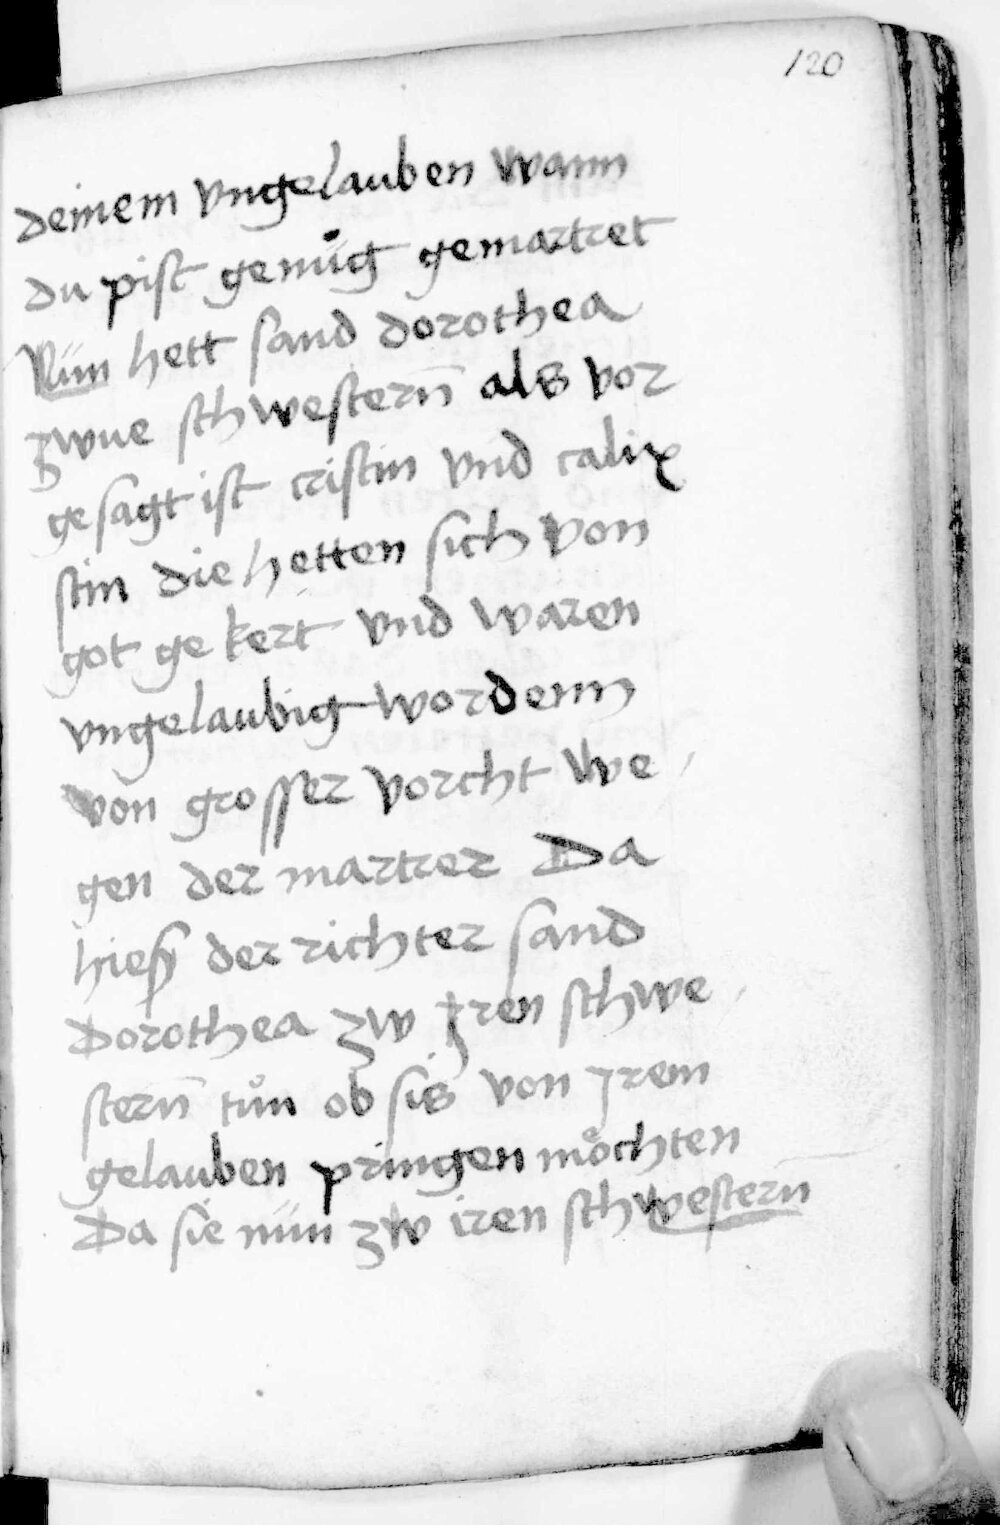 120
deinem vngelauben wann
du pist genůg gemartret
Nün hett sand dorothea
zwue schwestern̄ als vor
gesagt ist cristin vnd calix
stin die hetten sich von
got gekert vnd waren
vngelaubig wordenn
von grosser vorcht we
gen der martrer Da
hieß der richter sand
Dorothea zw Jren schwe
stern̄ tůn ob sis von Jrem
gelauben pringen mo̊chten
Da sie nün zw iren schwestern